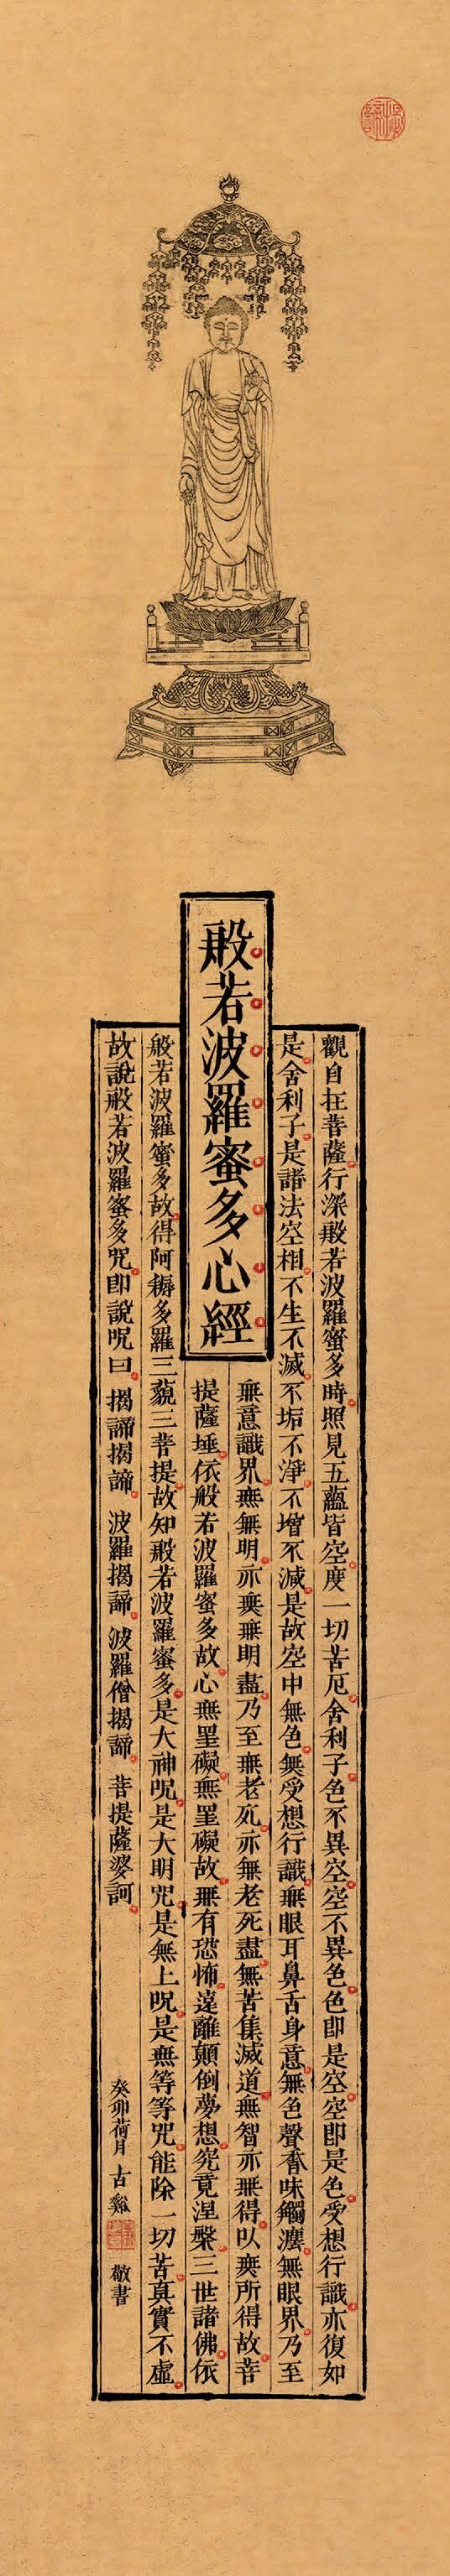 般若波羅蜜多心經
觀自在菩薩行深般若波羅蜜多時照見五蘊皆空度一切苦厄舍利子色不異空空不異色色即是空空即是色受想行識亦復如
是舍利子是諸法空相不生不滅不垢不淨不增不減是故空中無色無受想行識無眼耳鼻舌身意無色聲香味觸灋無眼界乃至
無意識界無無明亦無無明盡乃至無老死亦無老死盡無苦集滅道無智亦無得以無所得故菩
提薩埵依般若波羅蜜多故心無罣礙無罣礙故無有恐怖遠離顛倒夢想究竟涅槃三世諸佛依
般若波羅蜜多故得阿耨多羅三藐三菩提故知般若波羅蜜多是大神呪是大明咒是無上呪是無等等咒能除一切苦真實不虛
故說般若波羅蜜多咒即說呪曰 揭諦揭諦 波羅揭諦 波羅僧揭諦 菩提薩婆訶
癸卯荷月古谿 敬書